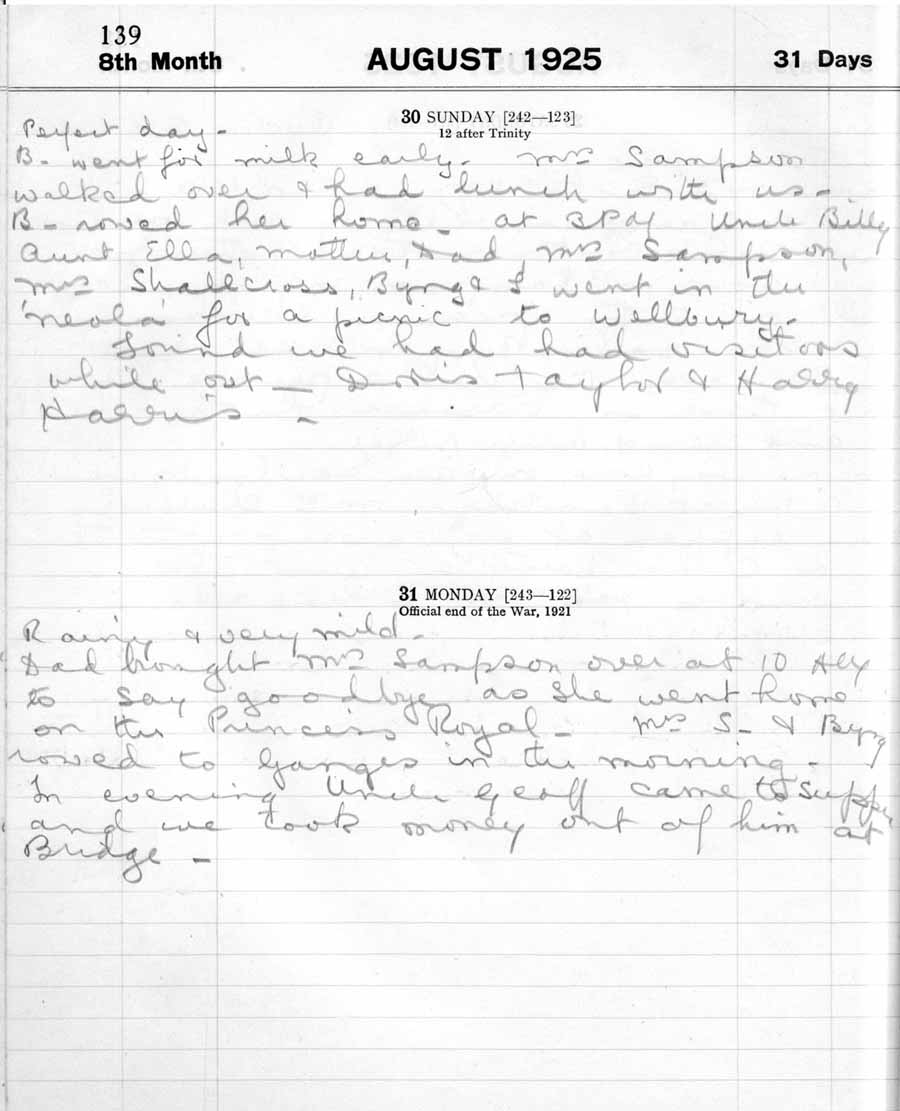 139
8th Month AUGUST 1925 31 Days
30 SUNDAY [242—123]
12 after Trinity
Perfect day -
B- went for milk early. Mrs Sampson
walked over & had lunch with us -
B- rowed her home - at 3 PM Uncle Billy
Aunt Ella, Mother, Dad, Mrs Sampson,
Mrs Shallcross, Byng & I went in the
'Neola' for a picnic to Wellbury -
Found we had had visitors
while out - Doris Taylor & Harry
Harris -
31 MONDAY [243—122]
Official end of the War, 1921
Rainy & very mild -
Dad brought Mrs Sampson over at 10
to say goodbye as she went home
on the Princess Royal - Mrs S- & Byng
rowed to Ganges in the morning -
In evening Uncle Geoff came to supper
and we took money out of him at
Bridge -